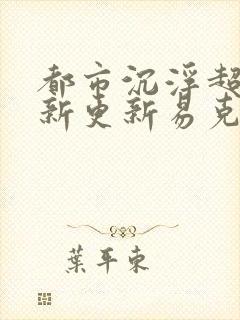 都市沉浮超
新更新易克
葉平東